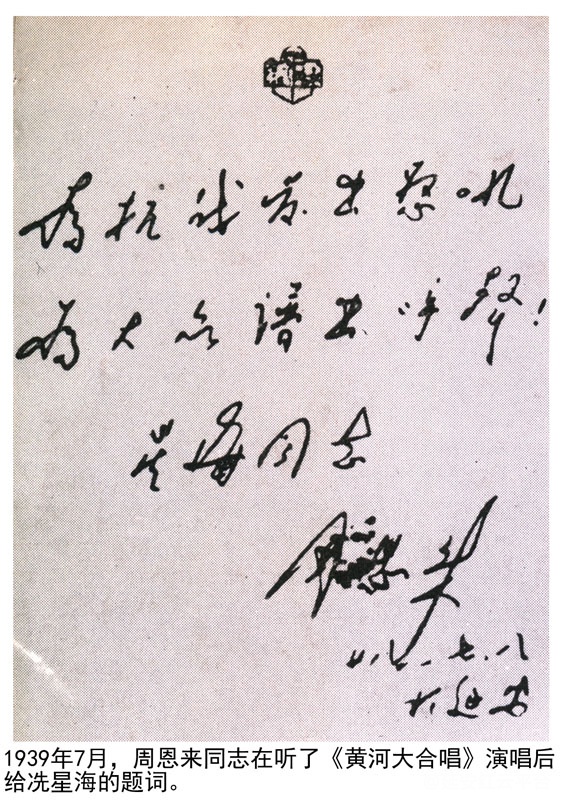 為抗战发出怒吼
為大众譜出呼聲!
星海同志
周恩来
廿八.七.八
於延安
1939年7月，周恩来同志在听了《黄河大合唱》演唱后
给冼星海的题词。